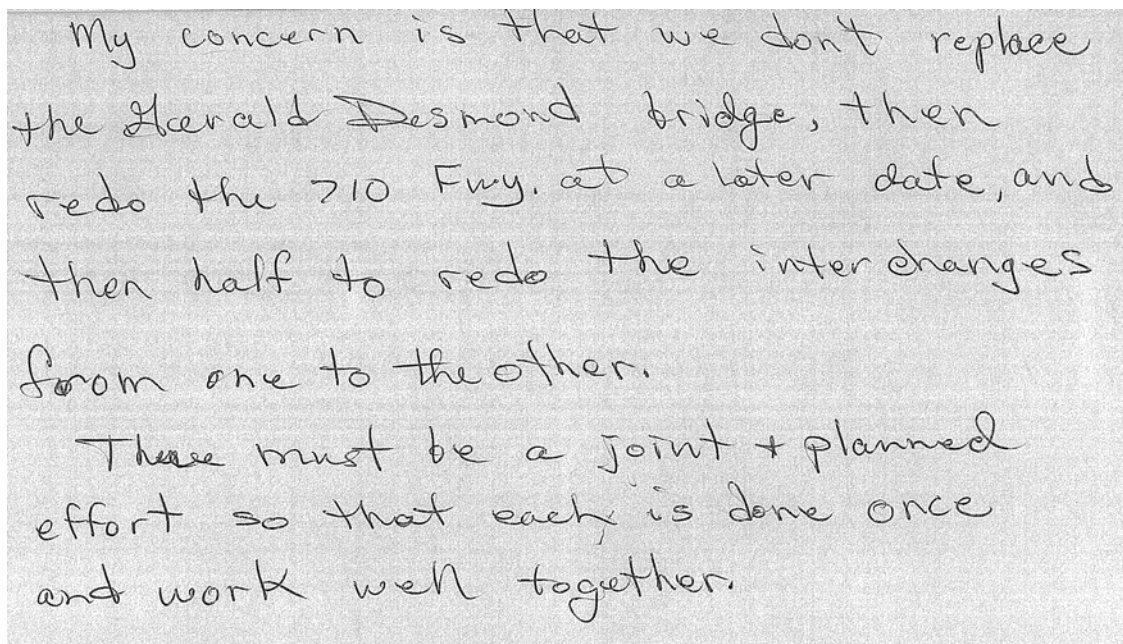 My concern is that we don't replace
the Harald Desmond bridge, then
redo the 710 Fwy. at a later date, and
then half to redo the interchanges
from one to the other.
There must be a joint + planned
effort so that each is done once
and work well together.